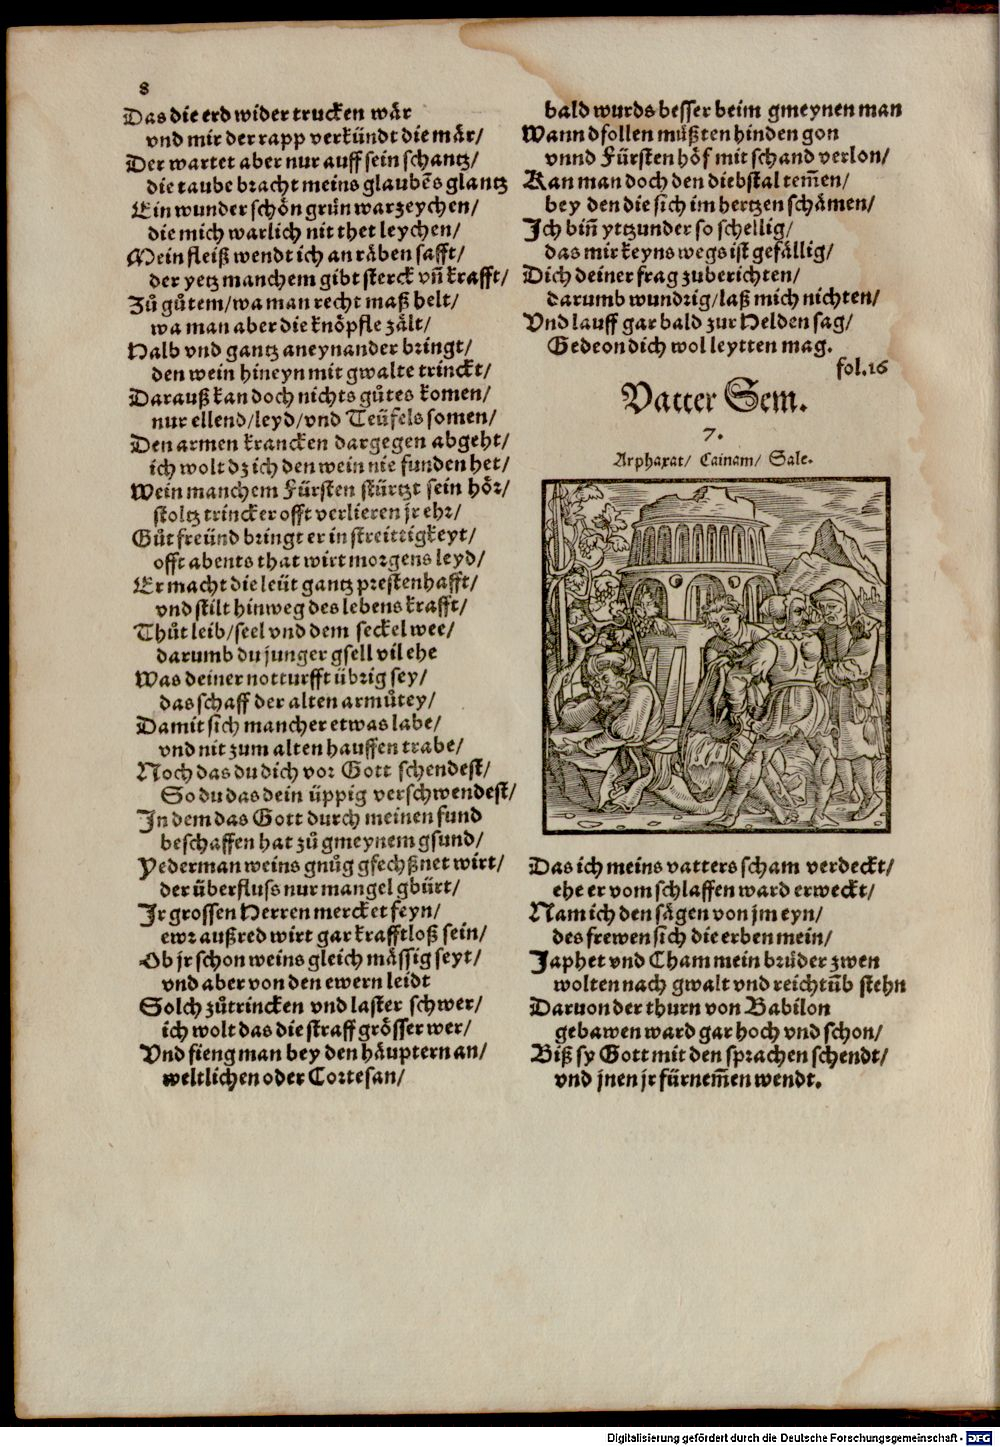 8
Das die erd wider trucken wär
vnd mir der rapp verkündt die mär/
Der wartet aber nur auff sein schantz/
die taube bracht meins glaubēs glantz
Ein wunder schön grün warzeychen/
die mich warlich nit thet leychen/
Mein fleiß wendt ich an räben safft/
der yetz manchem gibt sterck vñ krafft/
Zů gůtem/wa man recht maß helt/
wa man aber die knöpfle zält/
Halb vnd gantz aneynander bringt/
den wein hineyn mit gwalte trinckt/
Darauß kan doch nichts gůtes komen/
nur ellend/leyd/vnd Teüfels somen/
Den armen krancken dargegen abgeht/
ich wolt dz ich den wein nie funden het/
Wein manchem Fürsten stürtzt sein hör/
stoltz trincker offt verlieren jr ehr/
Gůt freünd bringt er in streittigkeyt/
offt abents that wirt morgens leyd/
Er macht die leüt gantz prestenhafft/
vnd stilt hinweg des lebens krafft/
Thůt leib/seel vnd dem seckel wee/
darumb du junger gsell vil ehe
Was deiner notturfft übrig sey/
das schaff der alten armůtey/
Damit sich mancher etwas labe/
vnd nit zum alten hauffen trabe/
Noch das du dich vor Gott schendest/
So du das dein üppig verschwendest/
In dem das Gott durch meinen fund
beschaffen hat zů gmeynem gsund/
Yederman weins gnůg gsechßnet wirt/
der überfluss nur mangel gbürt/
Ir grossen Herren mercket feyn/
ewr außred wirt gar krafftloß sein/
Ob jr schon weins gleich mässig seyt/
vnd aber von den ewern leidt
Solch zůtrincken vnd laster schwer/
ich wolt das die straff grösser wer/
Vnd fieng man bey den häuptern an/
weltlichen oder Cortesan/
bald wurds besser beim gmeynen man
Wann dsollen müßten hinden gon
vnnd Fürsten höf mit schand verlon/
Kan man doch den diebstal tem̄en/
bey den die sich im hertzen schämen/
Ich biñ ytzunder so schellig/
das mir keyns wegs ist gefällig/
Dich deiner frag zuberichten/
darumb wundrig/laß mich nichten/
Vnd lauff gar bald zur Helden sag/
Gedeon dich wol leytten mag.
fol.16
Vatter Sem.
7.
Arphaxat/ Cainam/ Sale.
Das ich meins vatters scham verdeckt/
ehe er vom schlaffen ward erweckt/
Nam ich den sägen von jm eyn/
des frewen sich die erben mein/
Japhet vnd Cham mein brüder zwen
wolten nach gwalt vnd reichtům̄ stehn
Daruon der thurn von Babilon
gebawen ward gar hoch vnd schon/
Biß sy Gott mit den sprachen schendt/
vnd jnen jr fürnem̄en wendt.
Digitalisierung gefördert durch die Deutsche Forschungsgemeinschaft - DFG